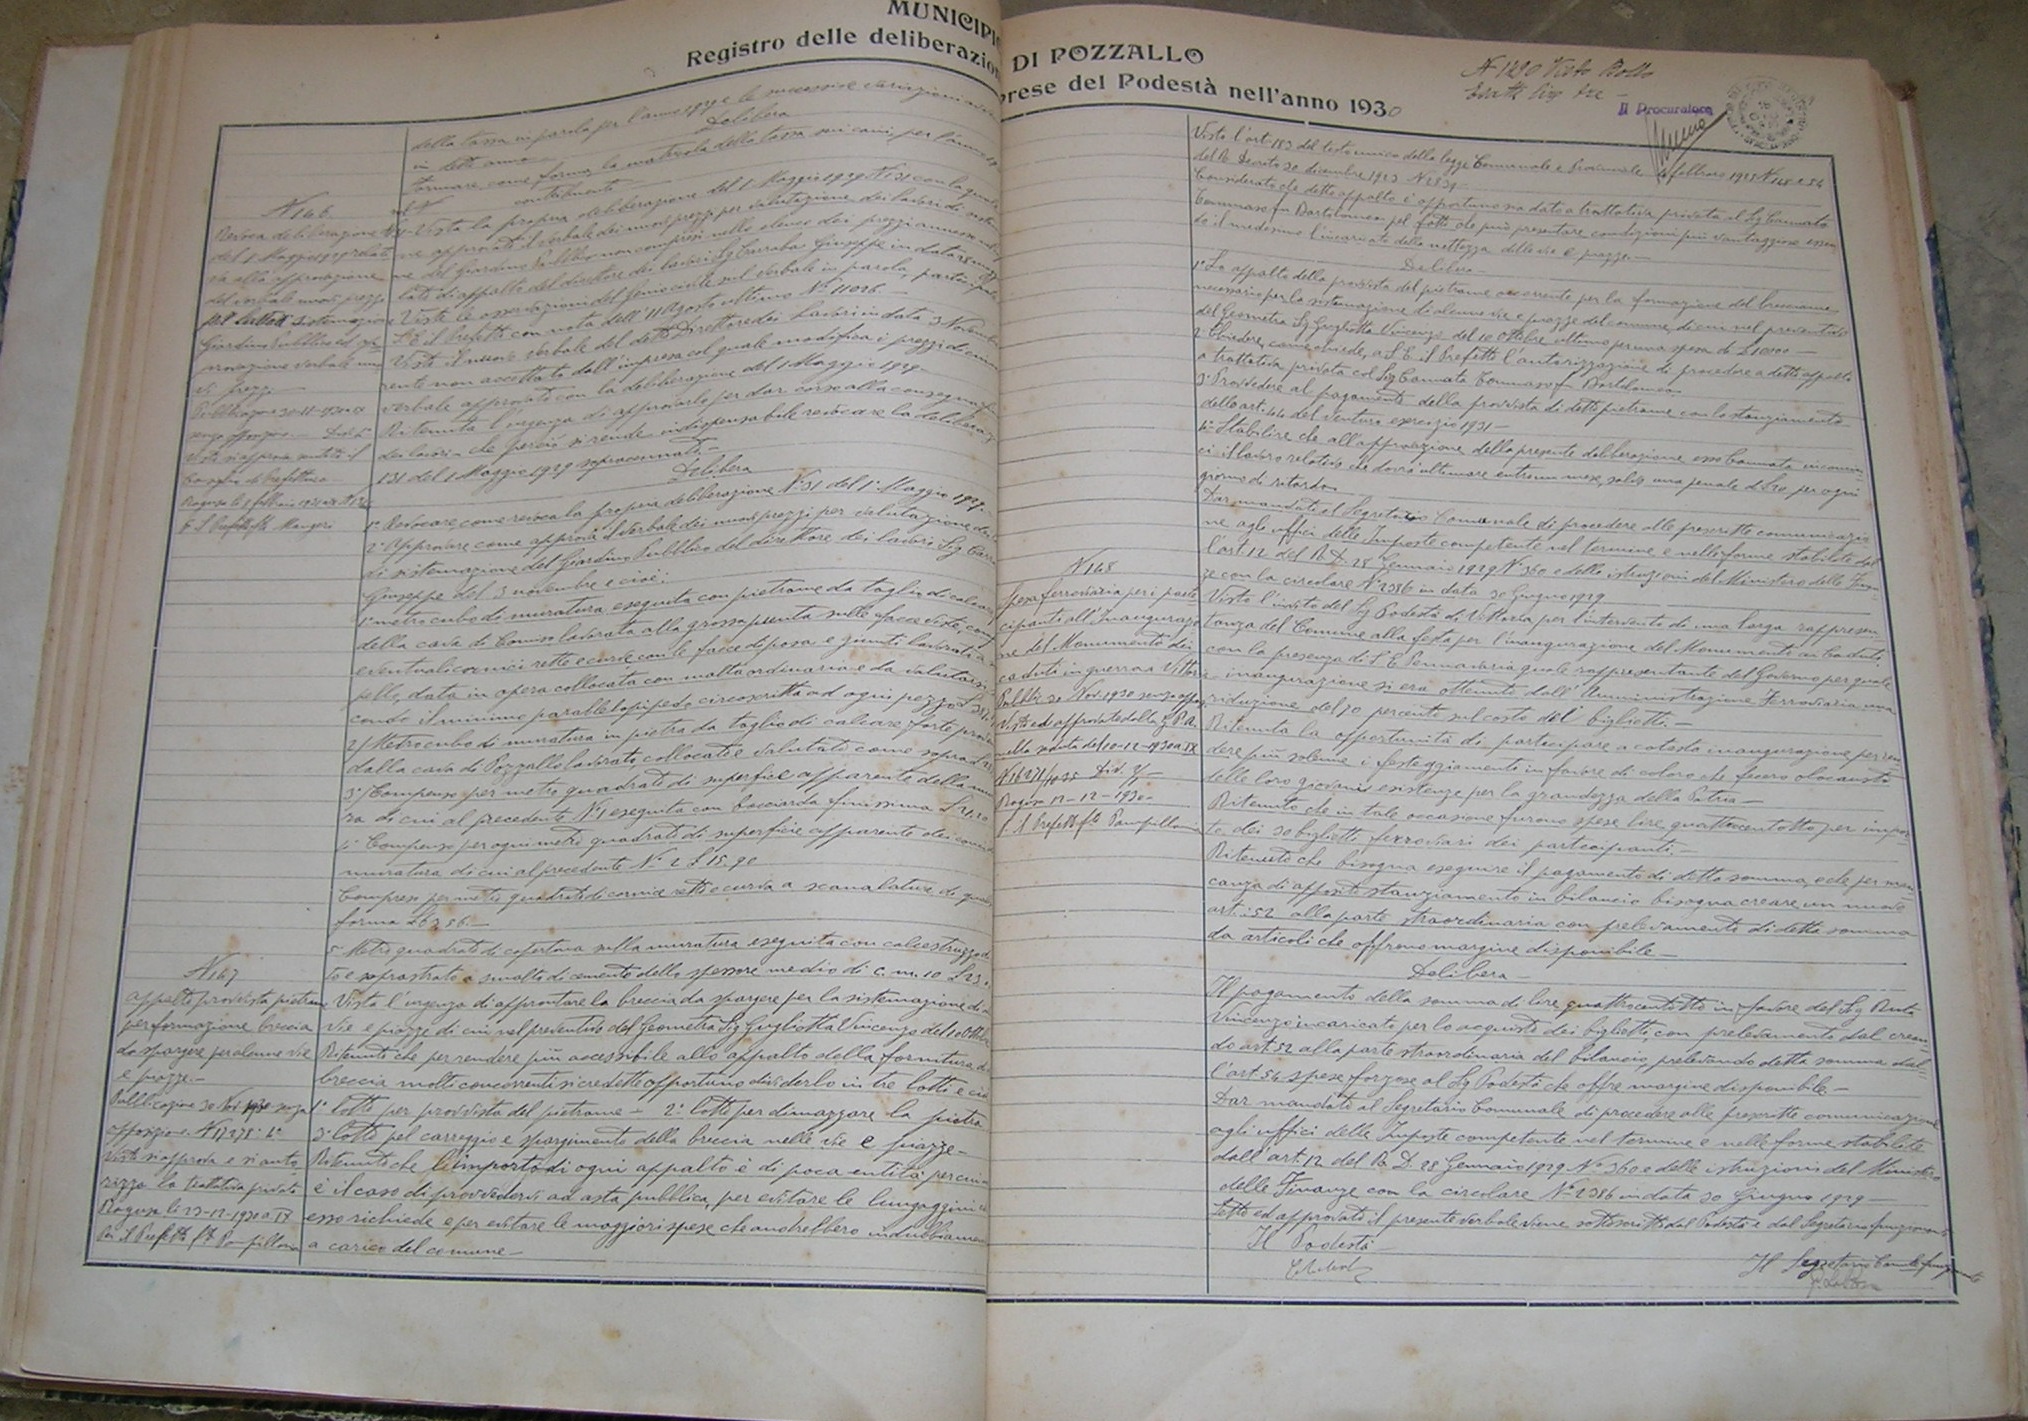 MUNICIPIO DI POZZALLO
Registro delle deliberazioni prese del Podestà nell'anno 1930
della tassa in parola per l'anno 1929 e le successive variazioni
in detto anno
Delibera
formare, come forma, la matricola della tassa sui cani, per l'anno
N 146
Revoca deliberazione N 131
del 1 Maggio 1929 relati
va alla approvazione
del verbale nuovi prezzi
sistemazione
Giardino Pubblico ed ap
provazione verbale nuo
vi prezzi
Pubblicazione 30-11-1930
senza opposizione
Visto si approva sentito il
Consiglio di Prefettura
Vista la propria deliberazione del 1 Maggio 1929 N 131 con la quale
ne approvato il verbale dei nuovi prezzi per valutazione dei lavori di
ne del Giardino Pubblico non compresi nello elenco dei prezzi annesso
lato di appalto del direttore dei lavori Sig Giuseppe in data
Viste le osservazioni del Genio civile sul verbale in parola, partecipate
S. E il Prefetto con nota dell'11 Agosto ultimo N. 11026
Visto il nuovo verbale del detto Direttore dei Lavori in data 3 Novembre
rente non accettato dall'impresa col quale modifica i prezzi di cui
verbale approvato con la deliberazione del 1 Maggio 1929
Ritenuta l'urgenza di approvarlo per dar corso alla consegna
dei lavori che perciò si rende indispensabile revocare la delibera
131 del 1 Maggio 1929 sopracennata
Delibera
1° Revocare, come revoca la propria deliberazione N. 131 del 1° Maggio 1929
2° Approvare come approva il verbale dei nuovi prezzi per valutazione dei
di sistemazione del Giardino Pubblico del direttore dei lavori Sig
Giuseppe del 3 novembre e cioè:
1° metro cubo di muratura eseguita con pietrame da taglio di calcare
della cava di Comiso lavorata alla grossa punta sulle facce viste, com
eventuali cornici rette e curve con le facce di posa e giunti lavorati a
pelle, data in opera collocata con malta ordinaria e da valutarsi
condo il minimo parallelepipedo circoscritto ad ogni pezzo
2) Metro cubo di muratura in pietra da taglio di calcare forte
dalla cava di Pozzallo lavorato collocato e valutato come sopra
3°) Compenso per metro quadrato di superfice apparente della mu
ra di cui al precedente N. 1 eseguita con bocciarda finissima
4° Compenso per ogni metro quadrato di superficie apparente
muratura di cui al precedente N. 2 £ 15,90
Compenso per metro quadrato di cornice retta o curva a scanalature di
forma £ 63,56.
5 Metro quadrato di copertura sulla muratura eseguita con calcestruzzo
to e soprastrato a smalto di cemento dello spessore medio di c. m. 10
N 147
appalto provvista pietrame
per formazione breccia
da spargere per alcune vie
e piazze.
Pubblicazione 30 Nov. 1930 senza
opposizione. N 17378
Visto si approva e si auto
rizza la trattativa privata
Ragusa li 23-12-1930 a IX
Vista l'urgenza di approntare la breccia da spargere per la sistemazione di
vie e piazze di cui nel preventivo del Geometra Sig Gugliotta Vincenzo del 10 Ottobre
Ritenuto che per rendere più accessibile allo appalto della fornitura di
breccia molti concorrenti si credette opportuno dividerlo in tre lotti e cioè
1° lotto per provvista del pietrame - 2° lotto per dimazzare la pietra
3° lotto pel carreggio e spargimento della breccia nelle vie e piazze
Ritenuto che l'importo di ogni appalto è di poca entità per cui
è il caso di provvedersi ad asta pubblica, per evitare le lungaggini
esso richiede e per evitare le maggiori spese che andrebbero indubbiamente
a carico del comune
N 1290 Visto Bollo
Esatte lire tre
Il Procuratore
Visto l'art. 183 del testo unico della legge Comunale e Provinciale 4 febbraio 1915 N 148 e
del R. Decreto 30 dicembre 1923 N 2839
Considerato che detto appalto è opportuno sia dato a trattativa privata al Sig Cannata
Tommaso fu Bartolomeo pel fatto che può presentare condizioni più vantaggiose essen
do il medesimo l'incaricato della nettezza delle vie e piazze
Delibera
1° Lo appalto della provvista del pietrame occorrente per la formazione del brecciame
necessario per la sistemazione di alcune vie e piazze del comune, di cui nel preventivo
del Geometra Sig Gugliotta Vincenzo del 10 Ottobre ultimo per una spesa di £ 10000
2° Chiedere, come chiede, a S. E il Prefetto l'autorizzazione di procedere a detto appalto
a trattativa privata col Sig Cannata Tommaso fu Bartolomeo
3° Provvedere al pagamento della provvista di detto pietrame con lo stanziamento
dello art. 44 del venturo esercizio 1931
4° Stabilire che all'approvazione della presente deliberazione esso Cannata incominci
ci il lavoro relativo che dovrà ultimare entro un mese, salvo una penale di £ 20 per ogni
giorno di ritardo
Dar mandato al Segretario Comunale di procedere alle prescritte comunicazio
ne agli uffici delle Imposte competente nel termine e nelle forme stabilite dal
l'art. 12 del R. D. 28 Gennaio 1929 N° 360 e delle istruzioni del Ministero delle Finan
ze con la circolare N° 2386 in data 30 Giugno 1929
N 148
Spesa ferroviaria per i parte
cipanti all'Inaugurazio
ne del Monumento dei
caduti in guerra a Vittoria
Pubbl. 30 Nov. 1930 senza oppos.
Vista ed approvata dalla G. P. A.
nella seduta del 10-12-1930 a IX
Ragusa 12-12-1930
Visto l'invito del Sig Podestà di Vittoria per l'intervento di una larga rappresen
tanza del Comune alla festa per l'inaugurazione del Monumento ai Caduti,
con la presenza di S. E Pennavaria quale rappresentante del Governo per quale
inaugurazione si era ottenuto dall'Amministrazione Ferroviaria una
riduzione del 70 percento sul costo del biglietto.
Ritenuta la opportunità di partecipare a cotesta inaugurazione per ren
dere più solenne i festeggiamenti in favore di coloro che fecero olocausto
delle loro giovani esistenze per la grandezza della Patria
Ritenuto che in tale occasione furono spese lire quattrocentotto per impor
to dei 30 biglietti ferroviari dei partecipanti.
Ritenuto che bisogna eseguire il pagamento di detta somma, e che per man
canza di apposito stanziamento in bilancio bisogna creare un nuovo
art. 52 alla parte straordinaria con prelevamento di detta somma
da articoli che offrono margine disponibile
Delibera
Il pagamento della somma di lire quattrocentotto in favore del Sig Ruta
Vincenzo incaricato per lo acquisto dei biglietti, con prelevamento dal crean
do art. 52 alla parte straordinaria del bilancio, prelevando detta somma dal
l'art. 54 spese forzose al Sig Podestà che offre margine disponibile
Dar mandato al Segretario Comunale di procedere alle prescritte comunicazione
agli uffici delle Imposte competente nel termine e nelle forme stabilite
dall'art. 12 del R. D. 28 Gennaio 1929 N° 360 e delle istruzioni del Ministero
delle Finanze con la circolare N° 2386 in data 30 Giugno 1929
Letto ed approvato il presente verbale viene sottoscritto dal Podestà e dal Segretario funzionante
Il Podestà
Il Segretario